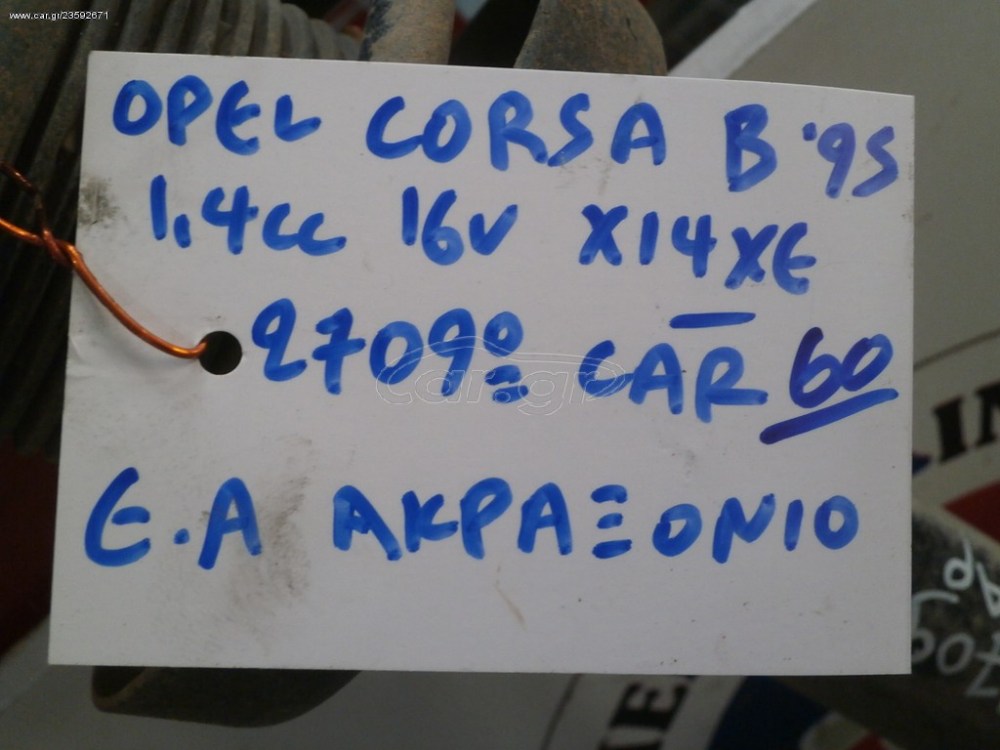 www.car.gr/23592671
OPEL CORSA B '95
1,4cc 16v X14XE
2709º CAR 60
car.gr
Ε.Α ΑΚΡΑΞΟΝΙΟ